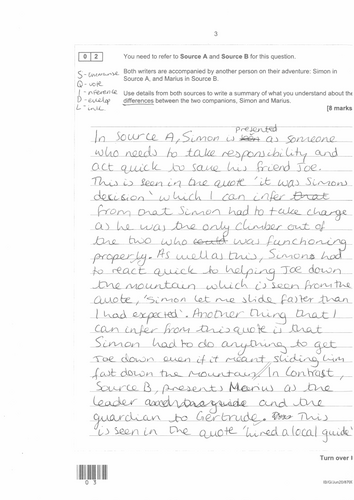 3
0 2 You need to refer to Source A and Source B for this question.
S - ummarise
Both writers are accompanied by another person on their adventure: Simon in
Q - uote
Source A, and Marius in Source B.
I - nference
Use details from both sources to write a summary of what you understand about the
D - evelop
differences between the two companions, Simon and Marius.
L - ink
[8 marks
In Source A, Simon is seen presented as someone
who needs to take responsibility and
act quick to save his friend Joe.
This is seen in the quote 'it was Simons
decision' which I can infer that
from that Simon had to take charge
as he was the only climber out of
the two who could was functioning
properly. As well as this, Simons had
to react quick to helping Joe down
the mountain which is seen from the
quote, 'Simon let me slide faster than
I had expected'. Another thing that I
can infer from this quote is that
Simon had to do anything to get
Joe down even if it meant sliding him
fast down the mountain // In contrast,
Source B, presents Marius as the
leader and the
guardian to Gertrude. This
is seen in the quote 'hired a local guide'
Turn over
0 3